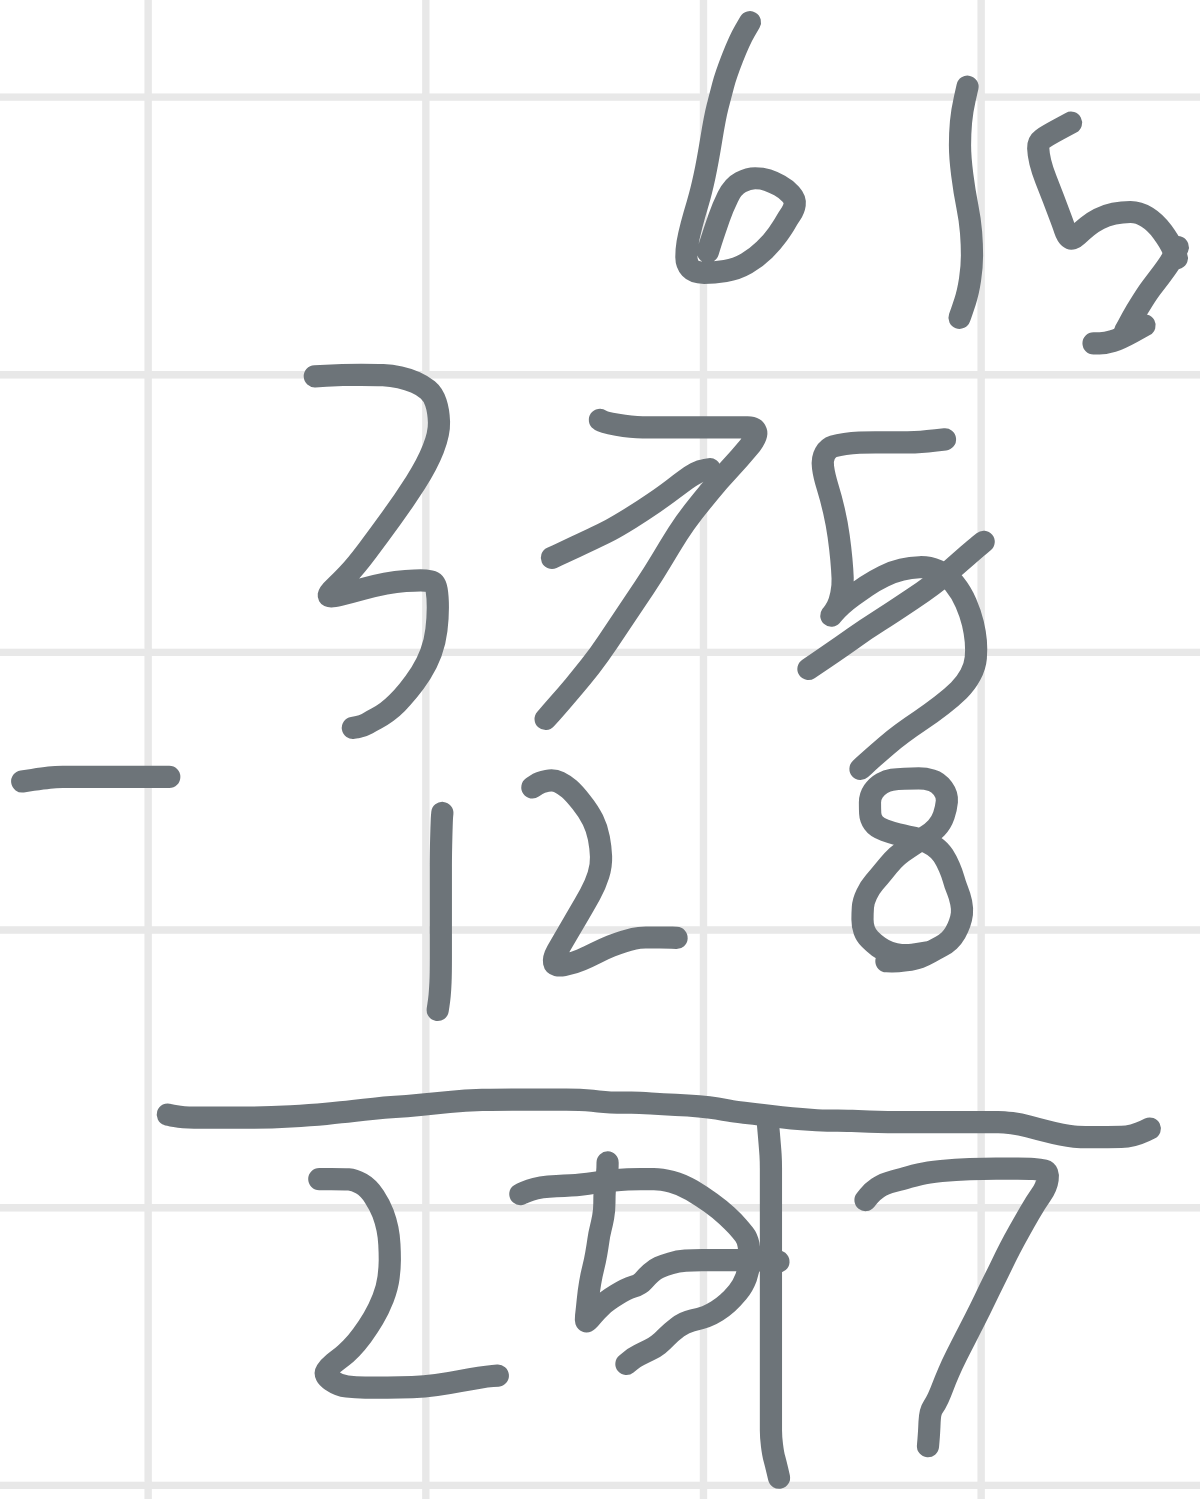 6 15
375
- 128
247